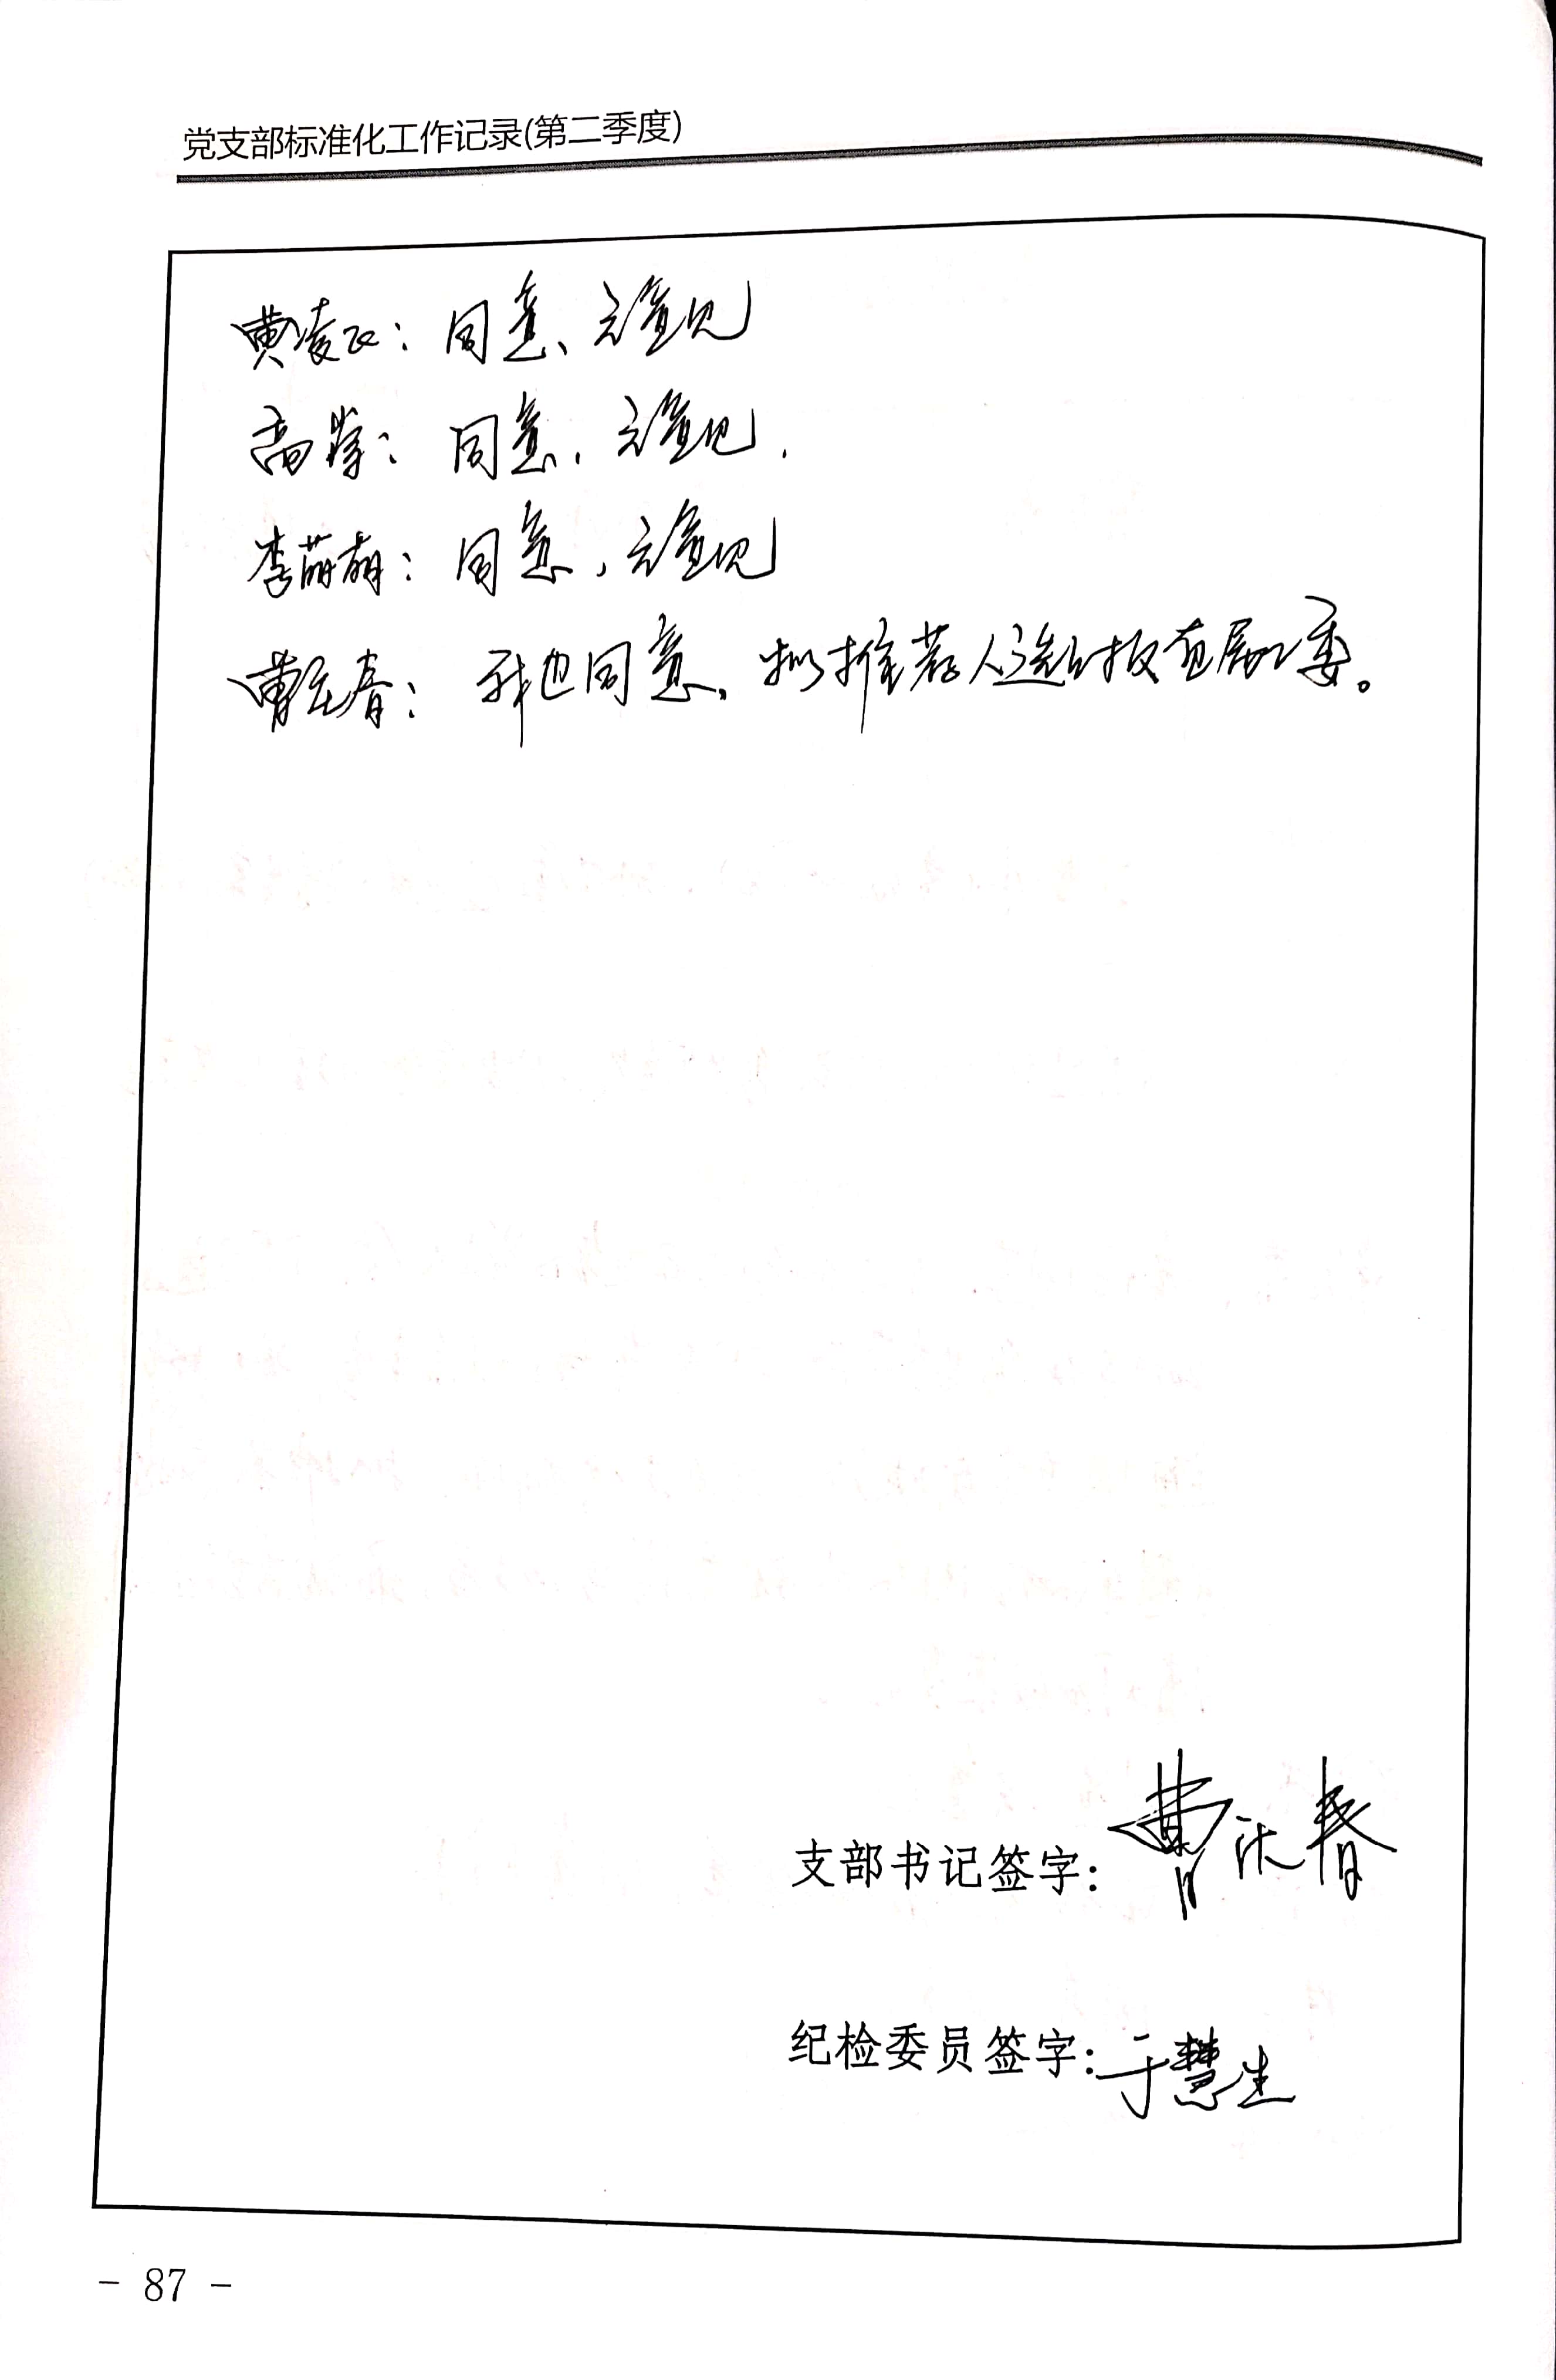 党支部标准化工作记录(第二季度)
黄凌飞：同意、无意见
高攀：同意，无意见.
李萌萌：同意，无意见
曹春：我也同意、拟推荐人选上报直属工委。
支部书记签字：曹春
纪检委员签字：于慧生
- 87 -